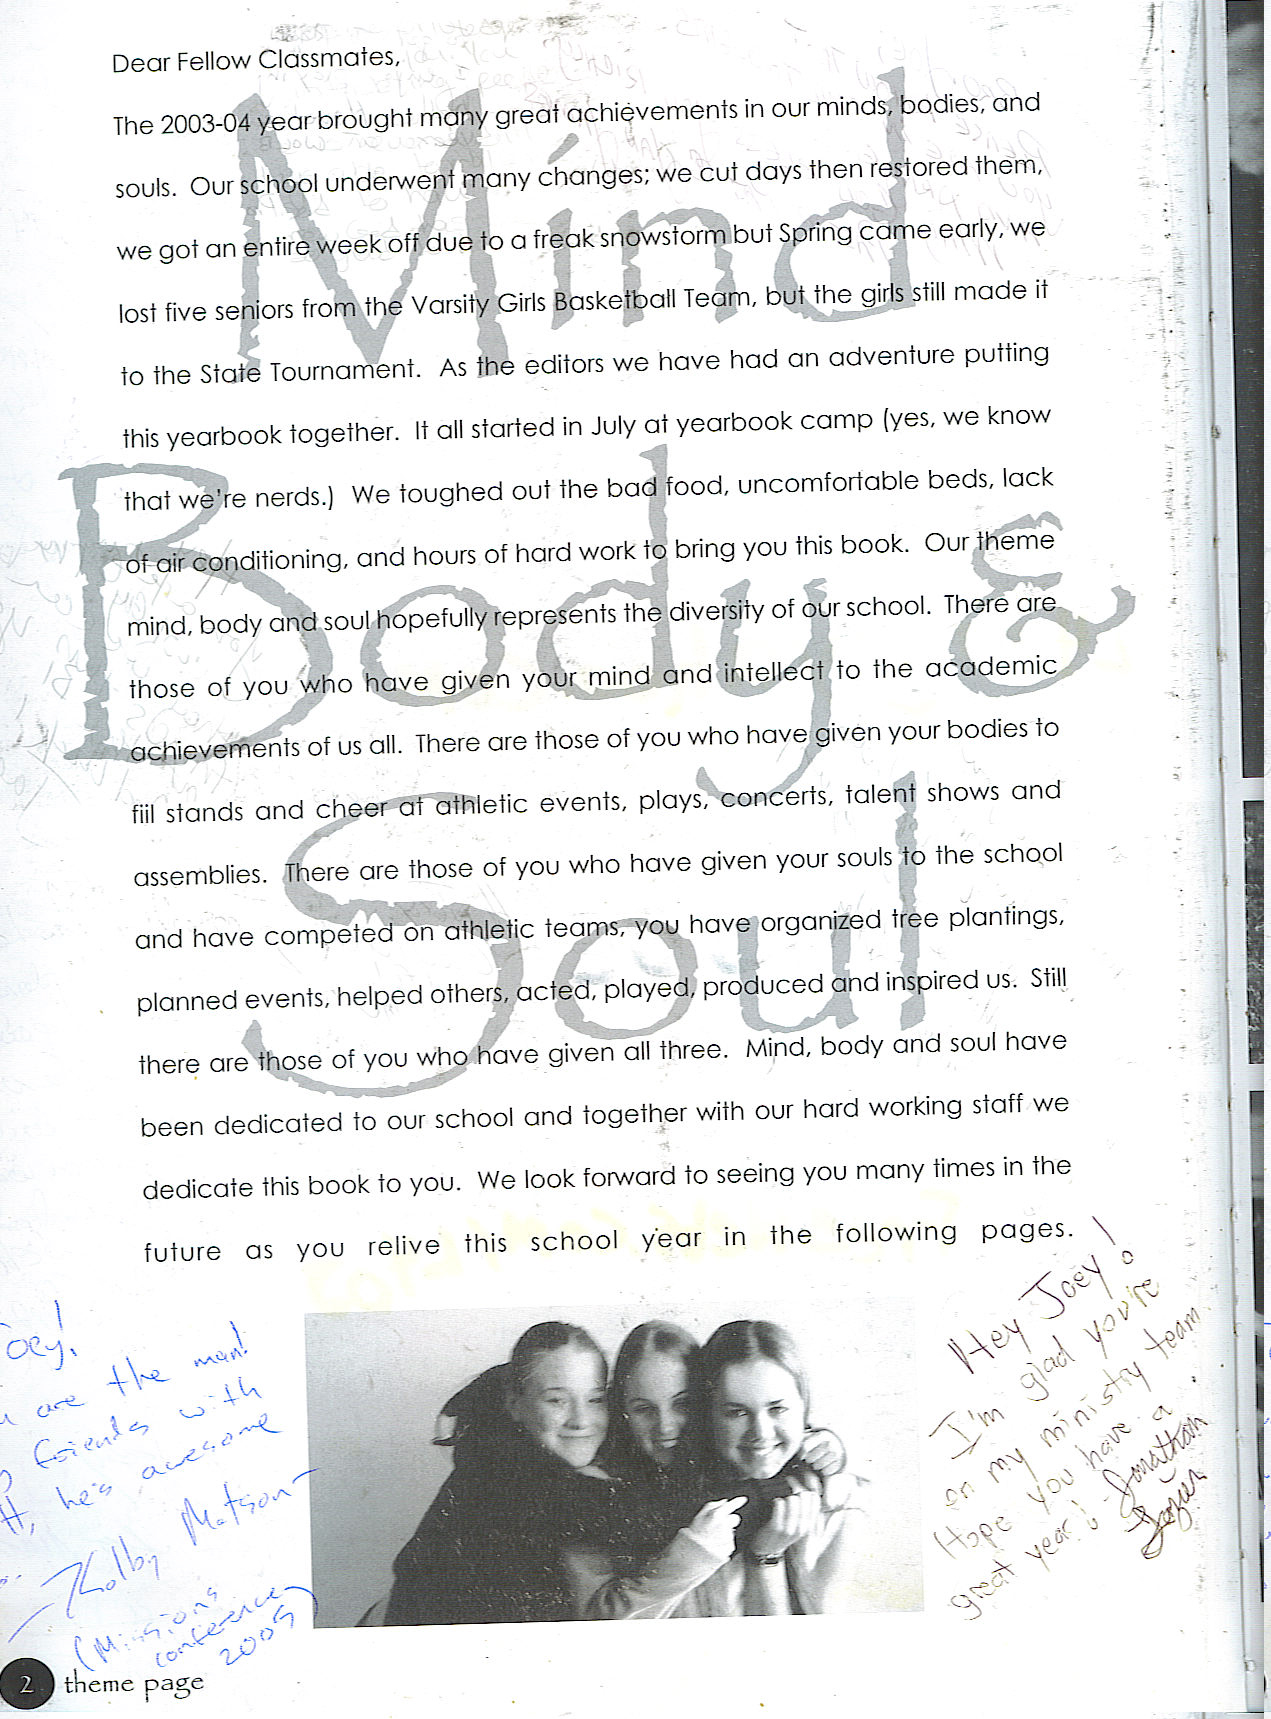 Dear Fellow Classmates,
The 2003-04 year brought many great achievements in our minds, bodies, and
souls. Our school underwent many changes; we cut days then restored them,
we got an entire week off due to a freak snowstorm but Spring came early, we
lost five seniors from the Varsity Girls Basketball Team, but the girls still made it
to the State Tournament. As the editors we have had an adventure putting
this yearbook together. It all started in July at yearbook camp (yes, we know
that we're nerds.) We toughed out the bad food, uncomfortable beds, lack
of air conditioning, and hours of hard work to bring you this book. Our theme
mind, body and soul hopefully represents the diversity of our school. There are
those of you who have given your mind and intellect to the academic
achievements of us all. There are those of you who have given your bodies to
fiil stands and cheer at athletic events, plays, concerts, talent shows and
assemblies. There are those of you who have given your souls to the school
and have competed on athletic teams, you have organized tree plantings,
planned events, helped others, acted, played, produced and inspired us. Still
there are those of you who have given all three. Mind, body and soul have
been dedicated to our school and together with our hard working staff we
dedicate this book to you. We look forward to seeing you many times in the
future as you relive this school year in the following pages.
Mind
Body &
Soul
oey!
are the man!
friends with
he's awesome
Kolby Matson
(Missions
conference
2005)
Hey Joey!
I'm glad you're
on my ministry team.
Hope you have a
great year! Jonathan
2 theme page